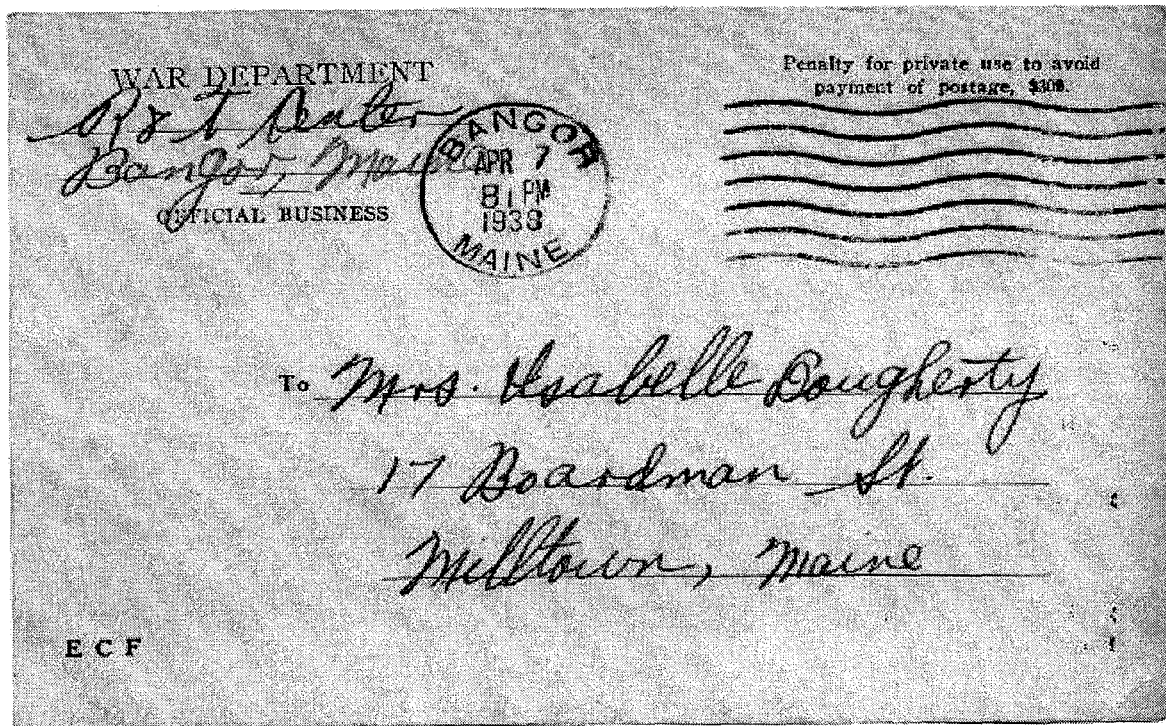 WAR DEPARTMENT
R & T Center
Bangor, Maine
OFFICIAL BUSINESS
BANGOR
APR 7
8 PM
1938
MAINE
Penalty for private use to avoid
payment of postage, $300.
To Mrs. Isabelle Dougherty
17 Boardman St.
Milltown, Maine
E C F